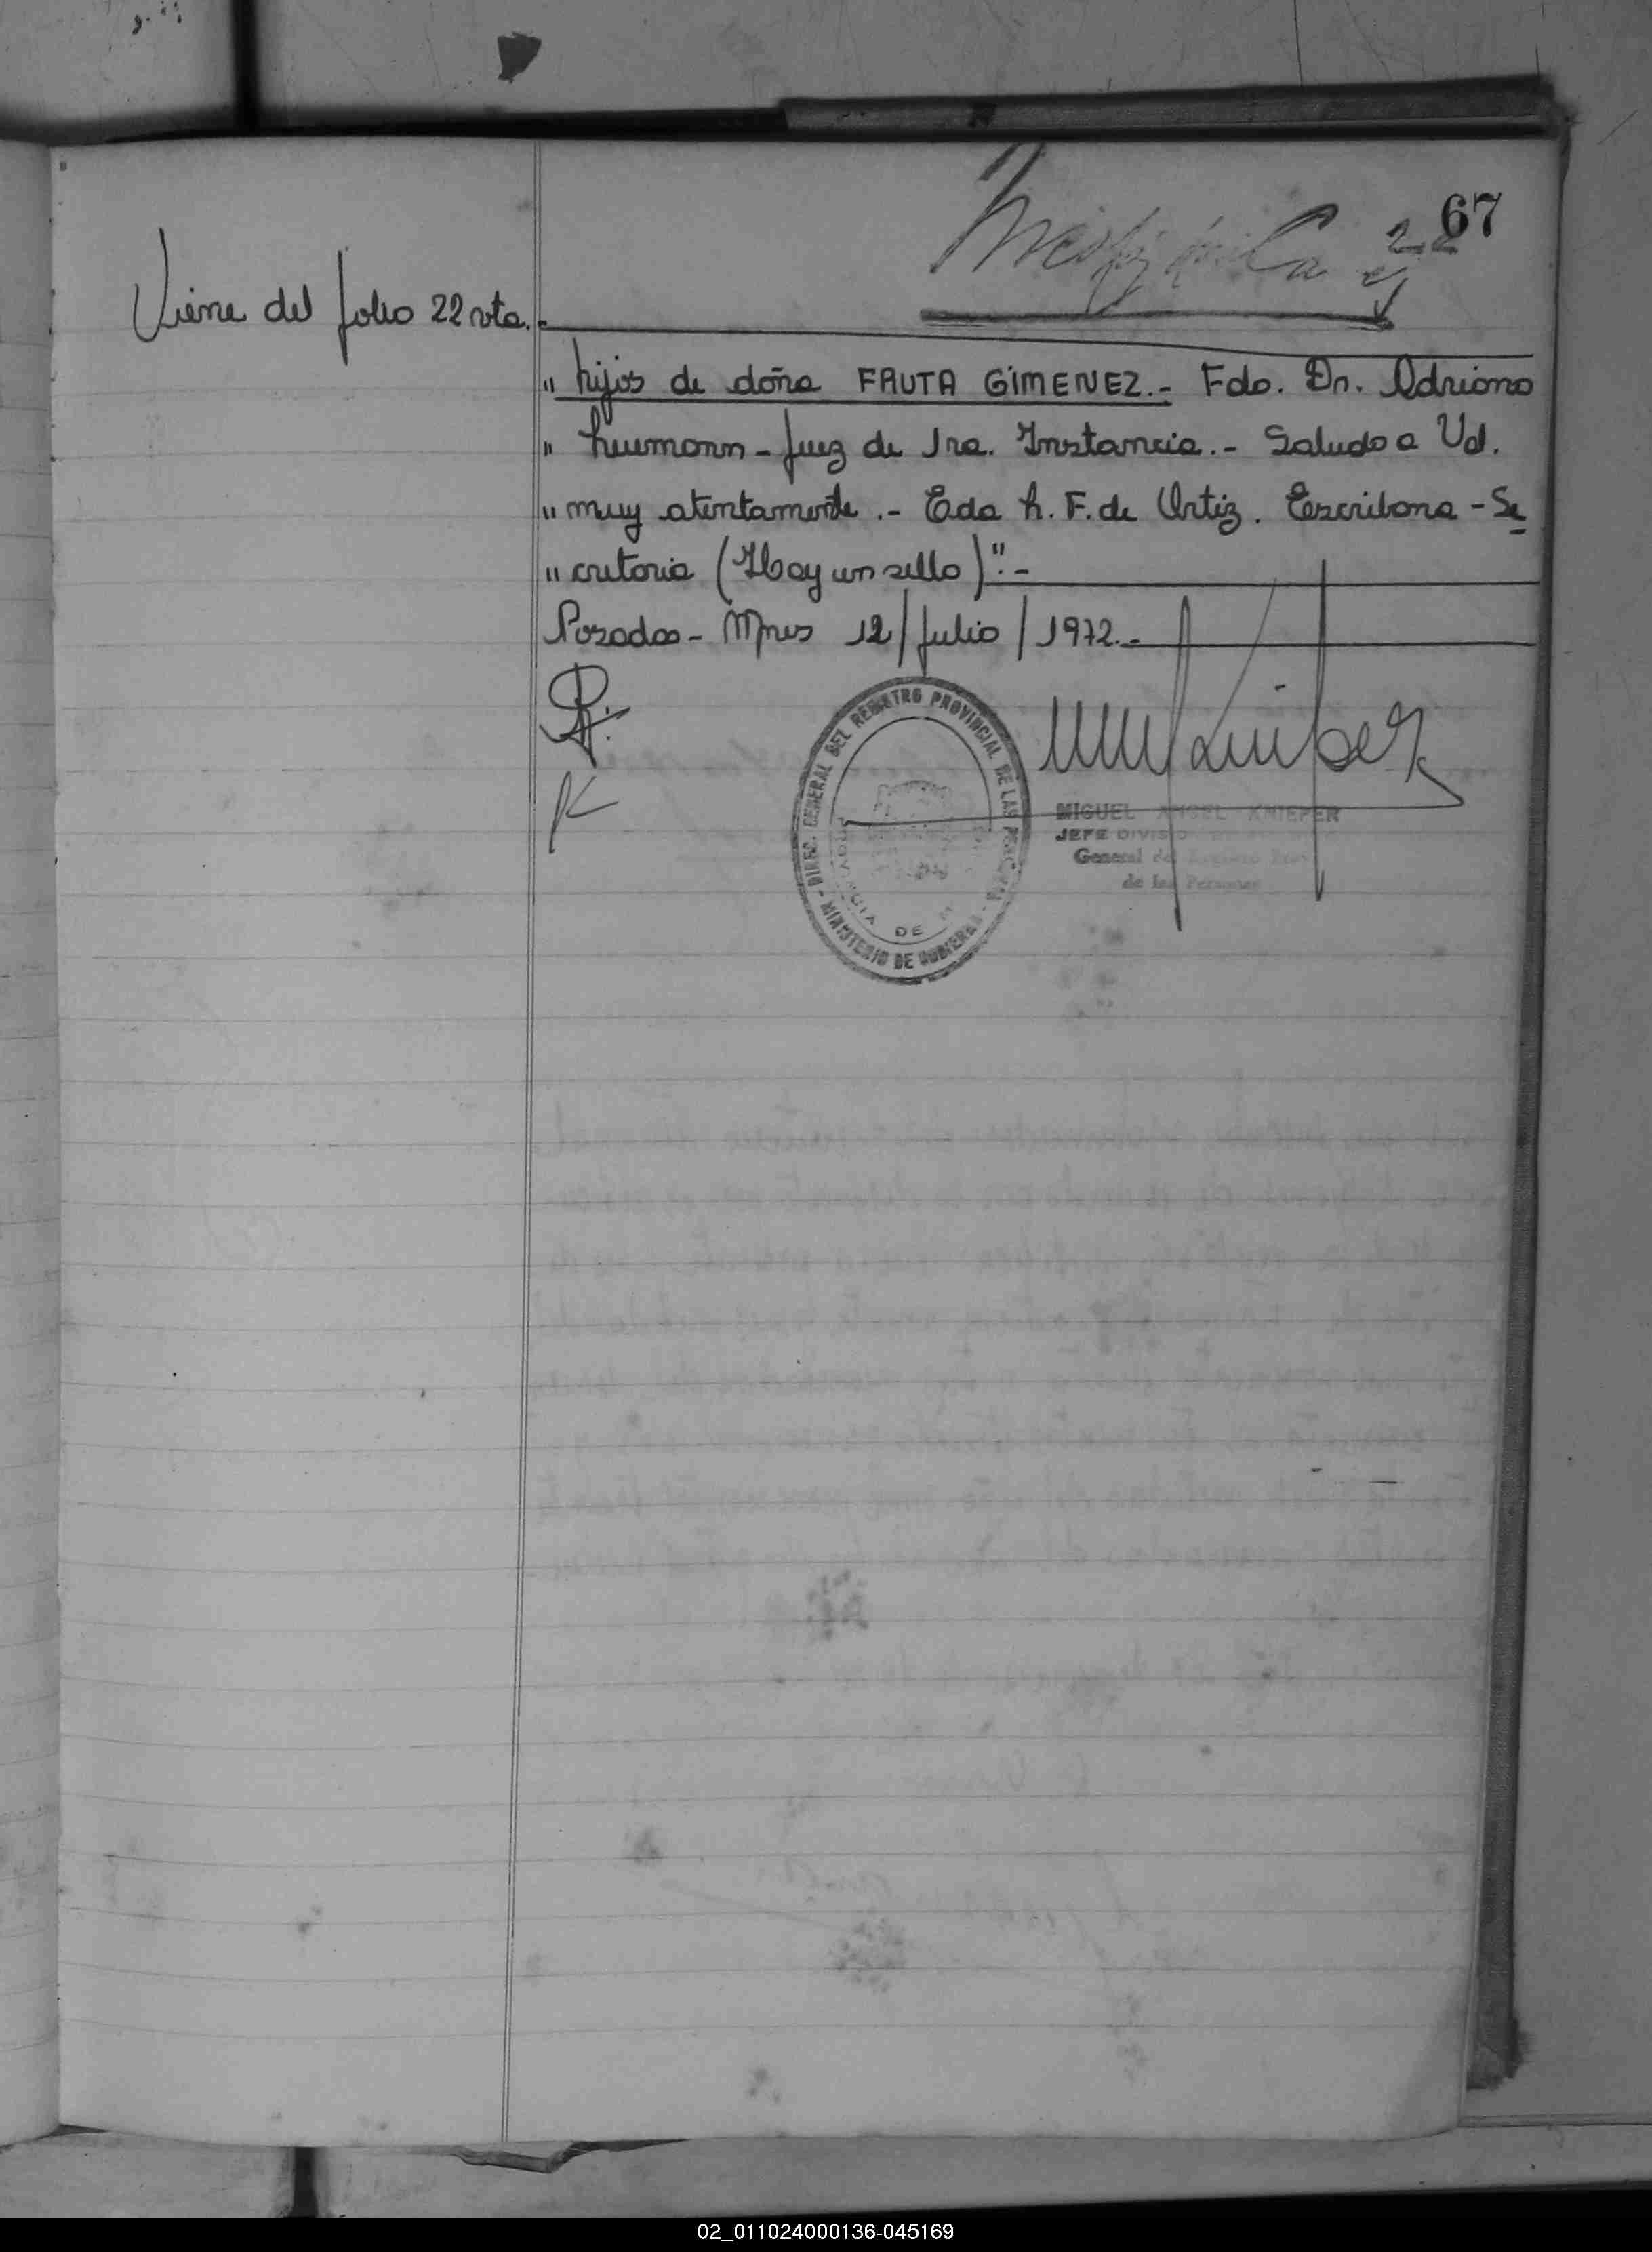 67
22
Viene del folio 22 vta.-
" hijos de doña FAUTA GIMENEZ.- Fdo. Dr. Adriano
" Luumann - Juez de 1ra. Instancia.- Saludo a Ud.
" muy atentamente.- Eda L. F. de Ortiz. Escribana - Se
" cretaria (Hay un sello)".-
Posadas - Mnes 12/Julio/1972.-
DIREC. GENERAL DEL REGISTRO PROVINCIAL DE LAS PERSONAS - MINISTERIO DE GOBIERNO -
DE
MIGUEL ANGEL KNIEPER
JEFE DIVISION
General del Registro Prov
de las Personas
02_011024000136-045169